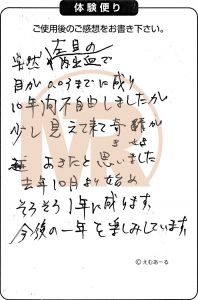 体験便り
ご使用後のご感想をお書き下さい。
突然 脊の血で
目が0.03までに成り
10年間不自由しましたが
少し見えて来て奇酵が
きせき
おきたと思いました
去年10月より始め
そろそろ1年に成ります。
今後の一年を楽しみしています。
MR
©えむあーる